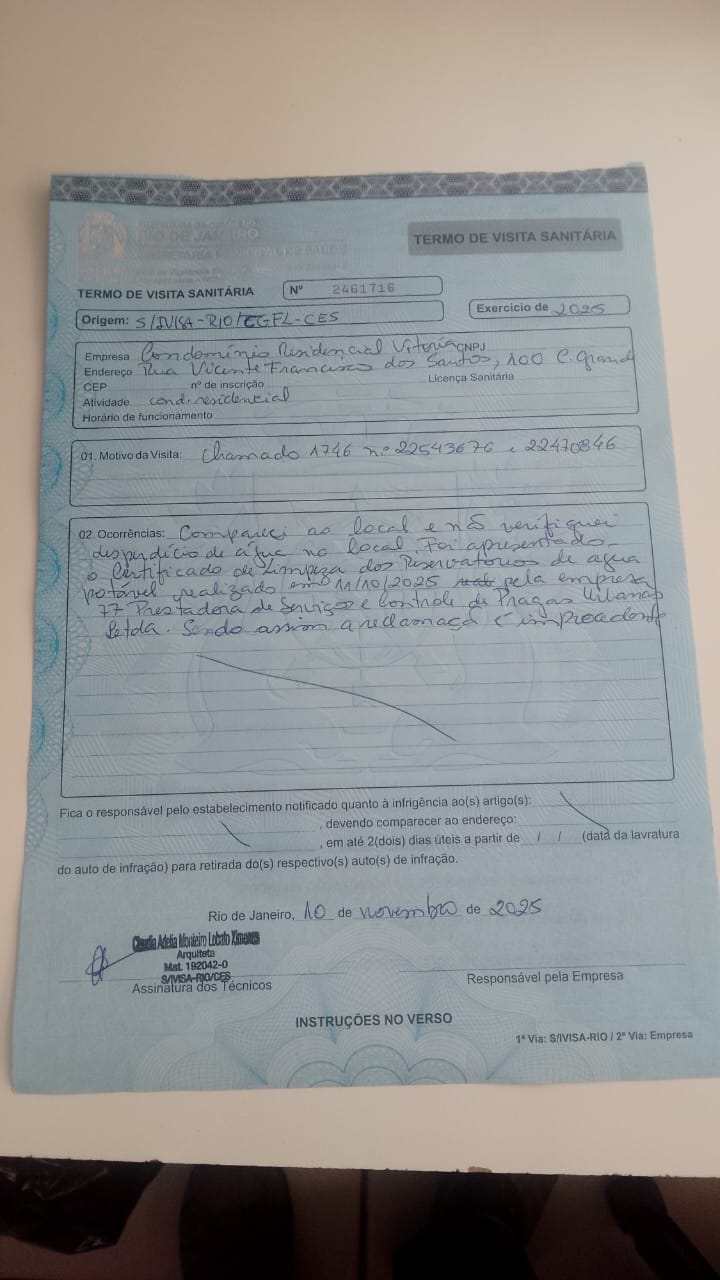 RIO DE JANEIRO
SECRETARIA MUNICIPAL DE SAÚDE
TERMO DE VISITA SANITÁRIA
TERMO DE VISITA SANITÁRIA Nº 2461716
Origem: S/IVISA-RIO/CGFL-CES Exercicio de 2025
Empresa Condomínio Residencial Vitoria CNPJ
Endereço Rua Vicente Francisco dos Santos, 100 C. Grande
CEP nº de inscrição Licença Sanitária
Atividade cond. residencial
Horário de funcionamento
01. Motivo da Visita: Chamado 1746 nº 22543676 e 22470846
02. Ocorrências: Compareci ao local e não verifiquei
desperdício de água no local. Foi apresentado
o Certificado de Limpeza dos Reservatórios de água
potável realizado em 11/10/2025 pela empresa
77 Prestadora de Serviços e Controle de Pragas Urbanas
Letda. Sendo assim a reclamação é improcedente
Fica o responsável pelo estabelecimento notificado quanto à infrigência ao(s) artigo(s):
, devendo comparecer ao endereço:
, em até 2(dois) dias úteis a partir de / / (data da lavratura
do auto de infração) para retirada do(s) respectivo(s) auto(s) de infração.
Rio de Janeiro, 10 de novembro de 2025
Claudia Adelia Monteiro Lobato Ximenes
Arquiteta
Mat. 192042-0
S/IVISA-RIO/CES
Assinatura dos Técnicos Responsável pela Empresa
INSTRUÇÕES NO VERSO
1ª Via: S/IVISA-RIO / 2ª Via: Empresa